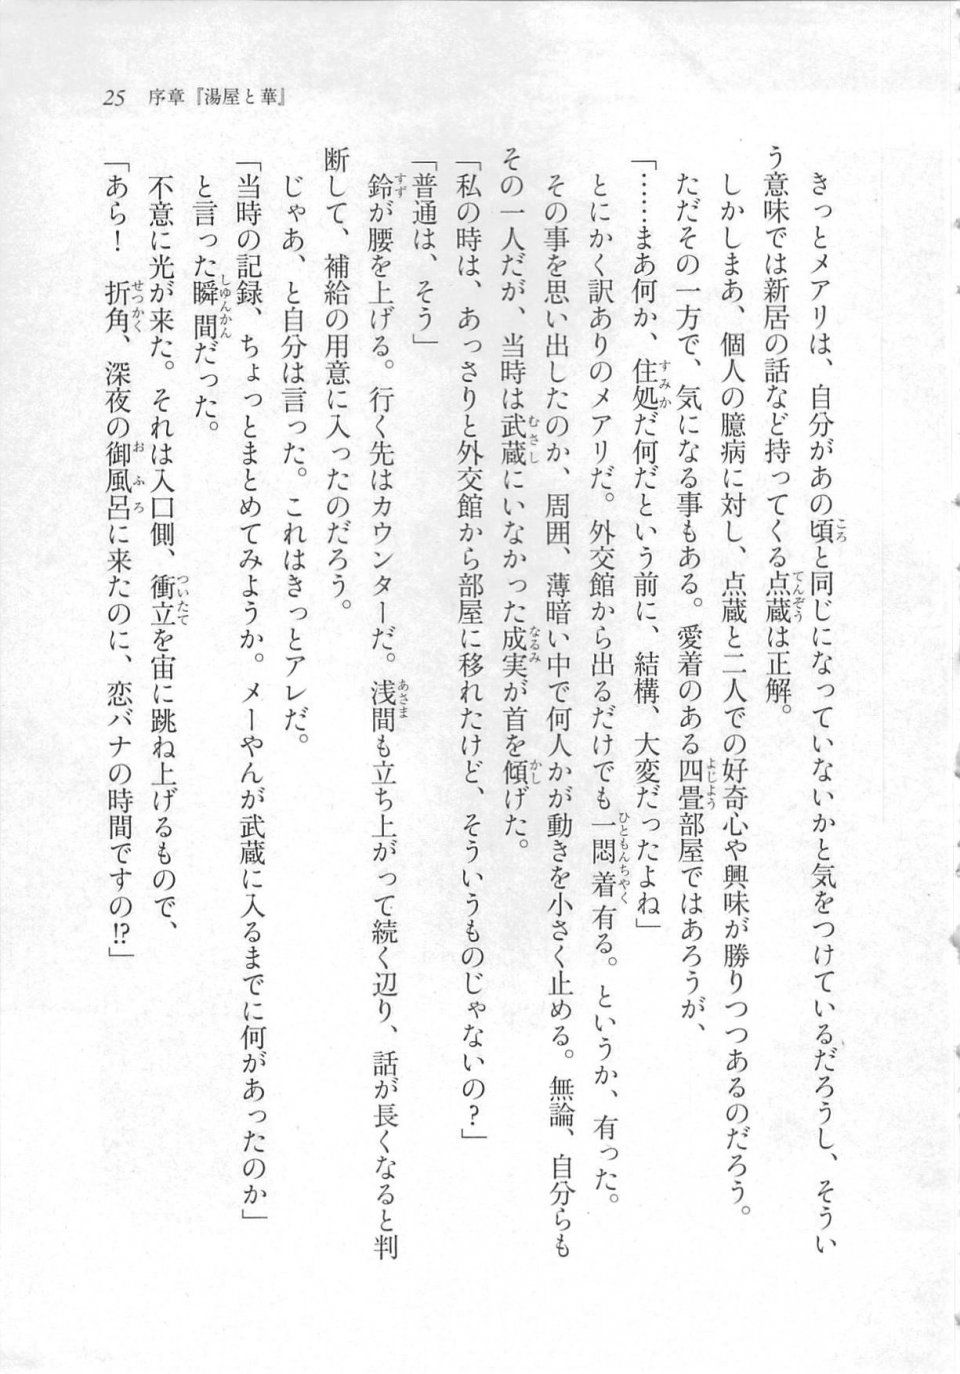 25 序章『湯屋と華』
きっとメアリは、自分があの頃と同じになっていないかと気をつけているだろうし、そうい
う意味では新居の話など持ってくる点蔵は正解。
しかしまあ、個人の臆病に対し、点蔵と二人での好奇心や興味が勝りつつあるのだろう。
ただその一方で、気になる事もある。愛着のある四畳部屋ではあろうが、
「……まあ何か、住処だ何だという前に、結構、大変だったよね」
とにかく訳ありのメアリだ。外交館から出るだけでも一悶着有る。というか、有った。
その事を思い出したのか、周囲、薄暗い中で何人かが動きを小さく止める。無論、自分らも
その一人だが、当時は武蔵にいなかった成実が首を傾げた。
「私の時は、あっさりと外交館から部屋に移れたけど、そういうものじゃないの？」
「普通は、そう」
鈴が腰を上げる。行く先はカウンターだ。浅間も立ち上がって続く辺り、話が長くなると判
断して、補給の用意に入ったのだろう。
じゃあ、と自分は言った。これはきっとアレだ。
「当時の記録、ちょっとまとめてみようか。メーやんが武蔵に入るまでに何があったのか」
と言った瞬間だった。
不意に光が来た。それは入口側、衝立を宙に跳ね上げるもので、
「あら！　折角、深夜の御風呂に来たのに、恋バナの時間ですの⁉」